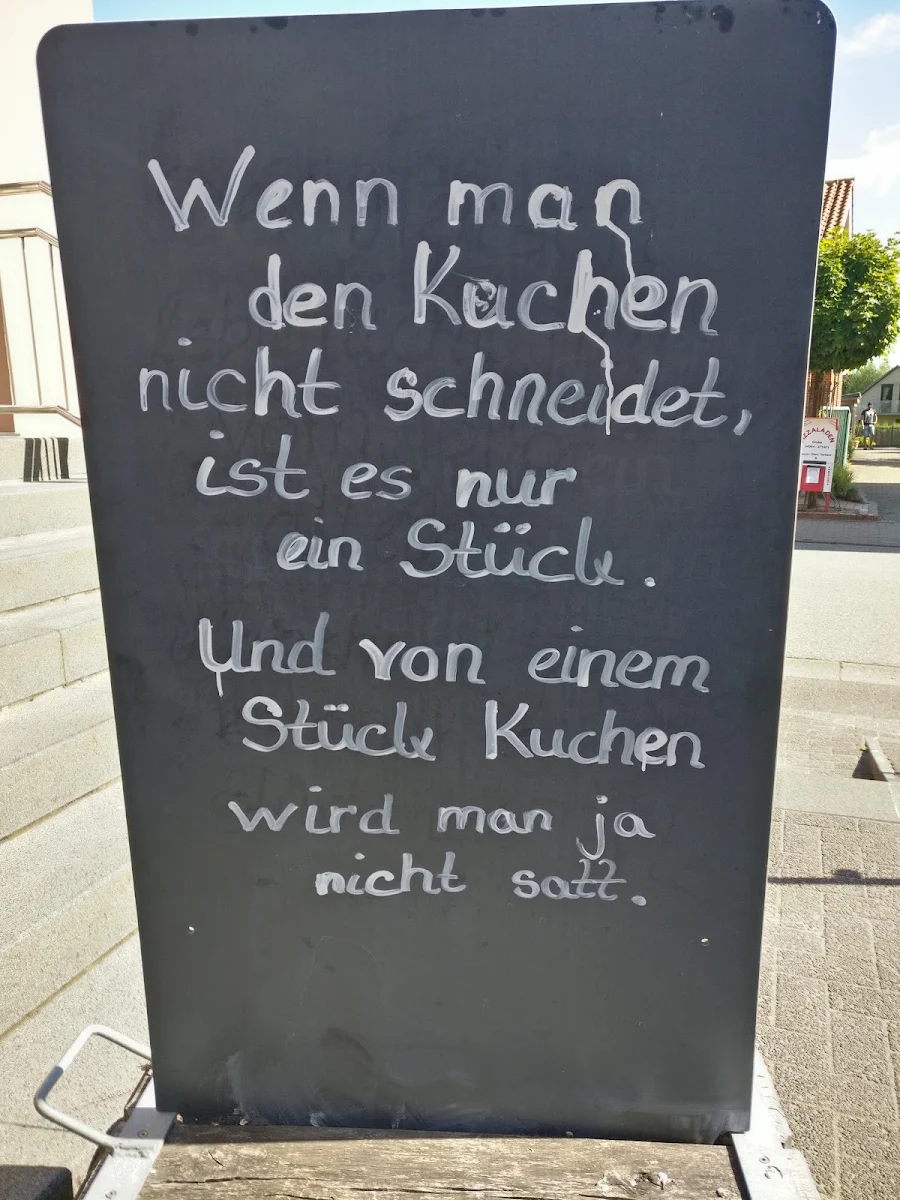 Wenn man
den Kuchen
nicht schneidet,
ist es nur
ein Stück.
Und von einem
Stück Kuchen
wird man ja
nicht satt.